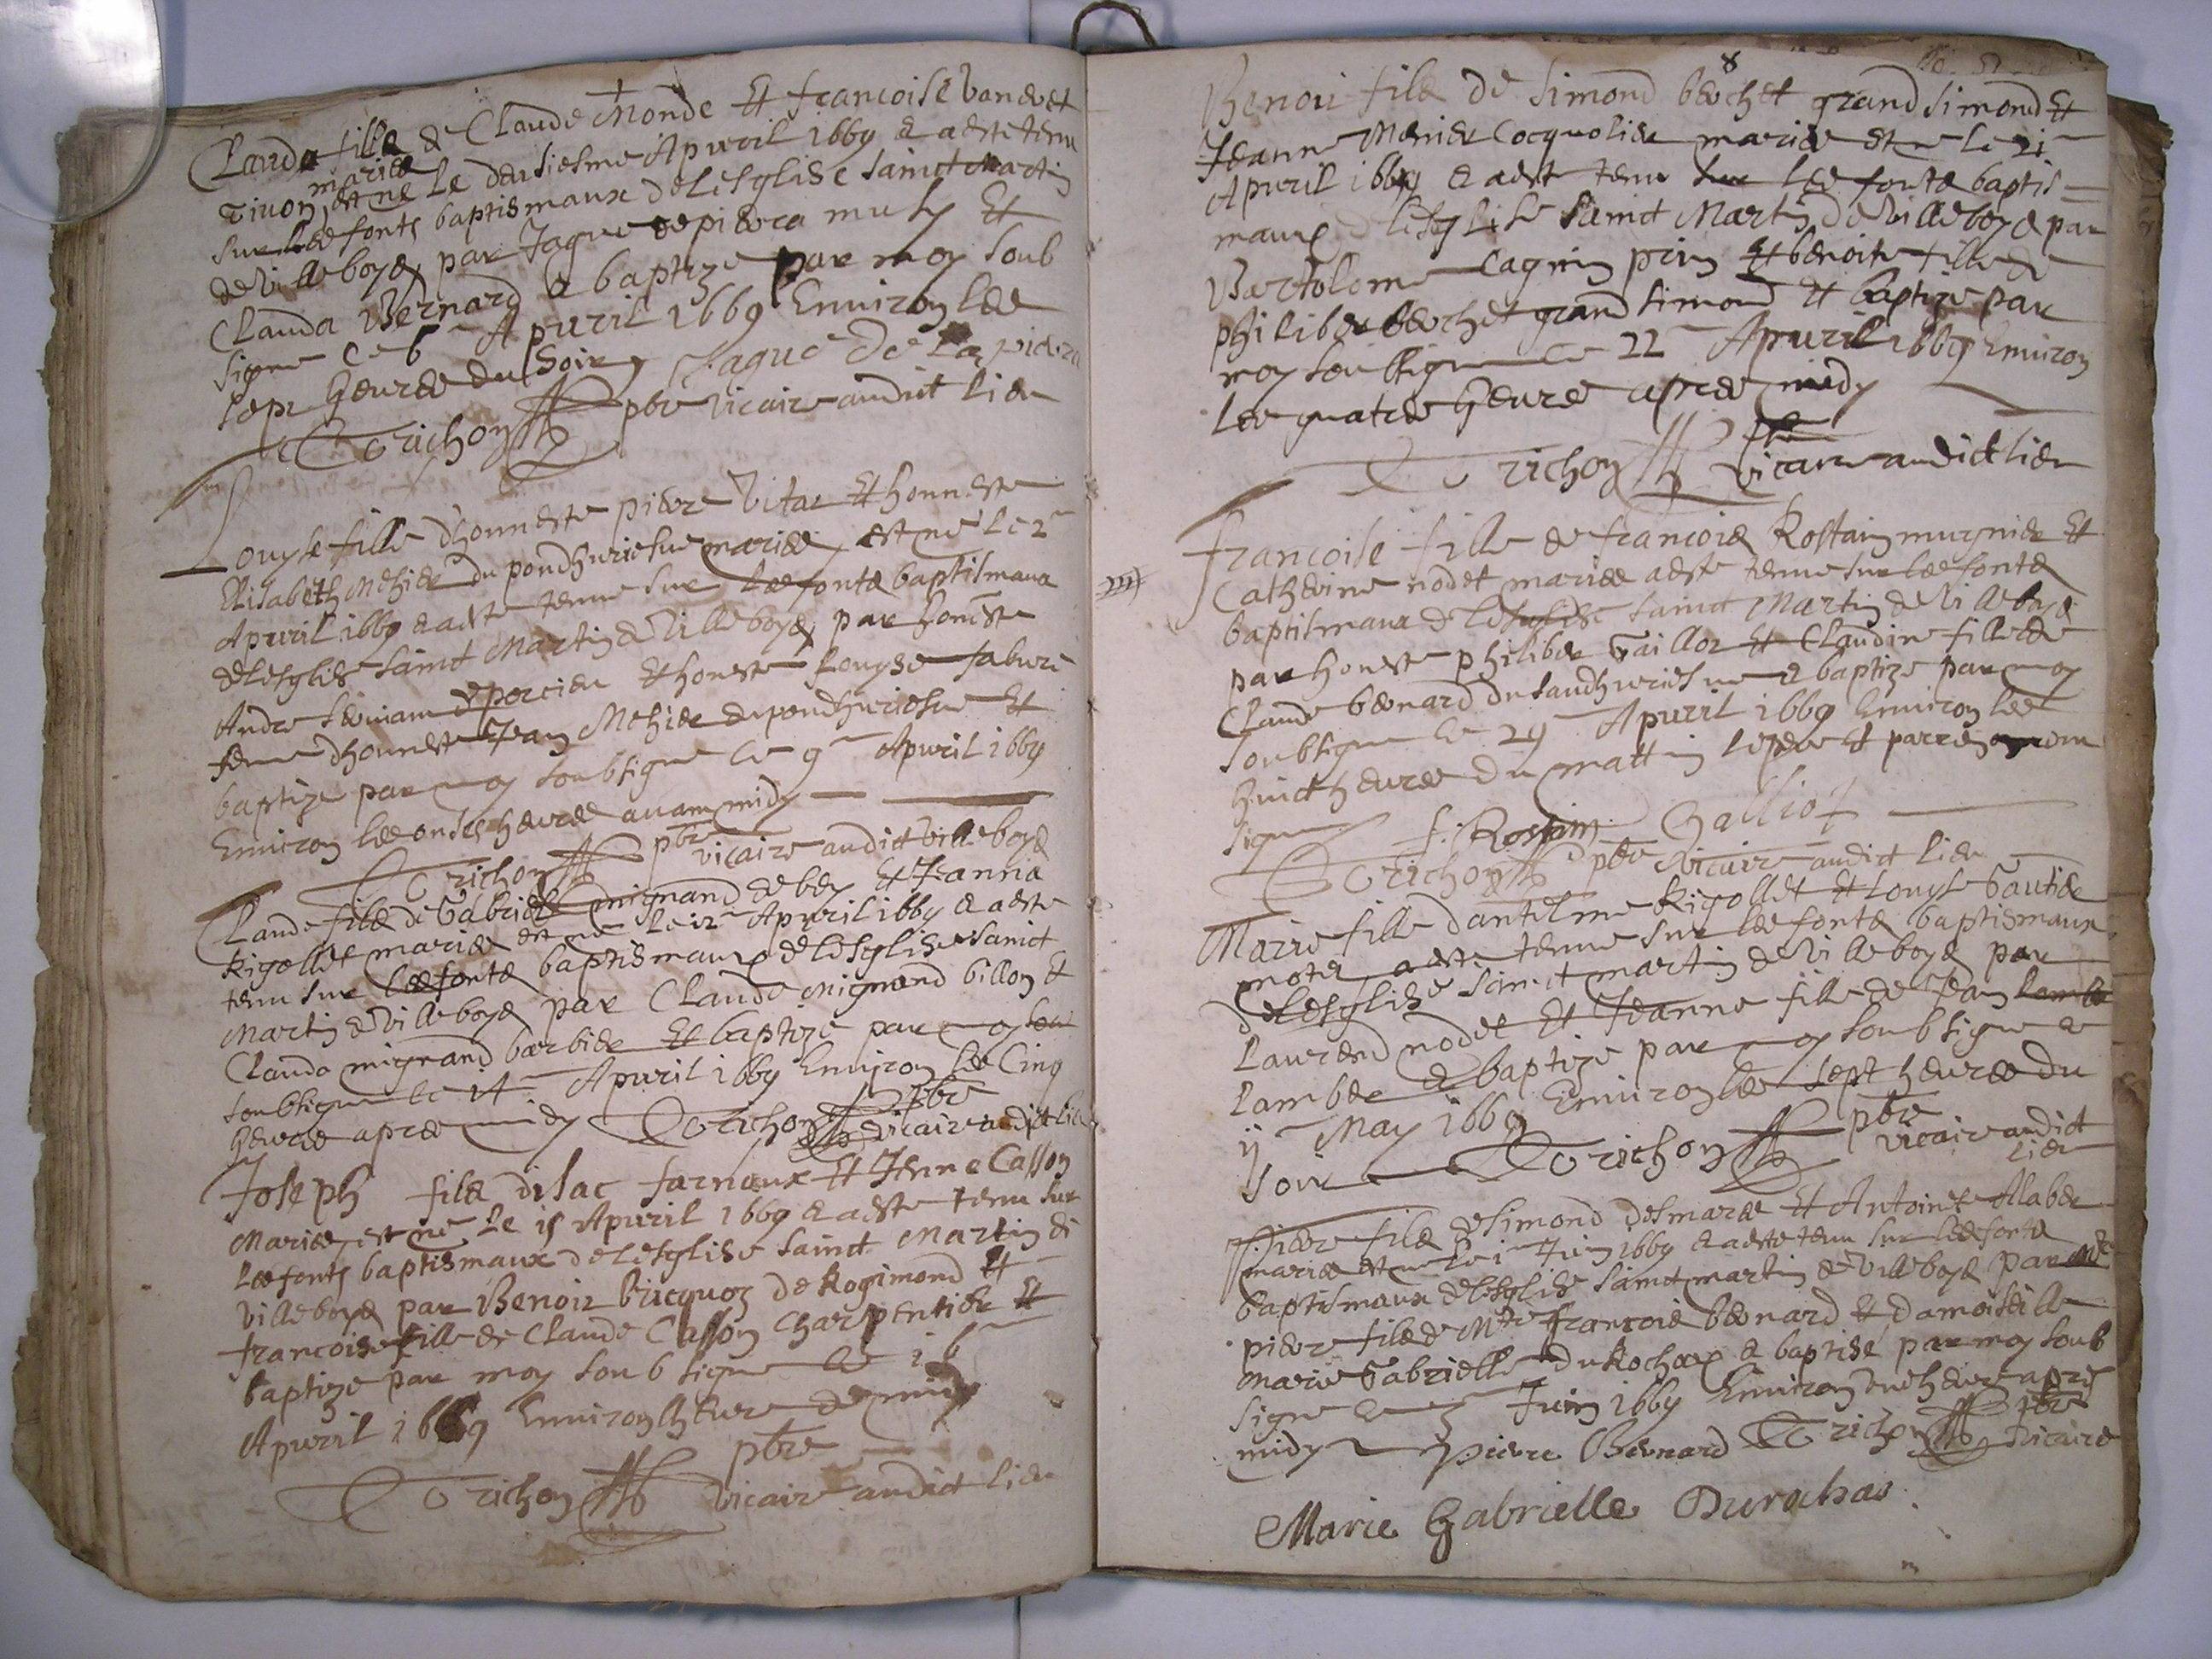 Clauda fille de Claude Monde Et francoise bonevet
Tivon mariee est ne Le deusiesme Apvril 1669 & a este tenu
sur lesfonts baptismaux de lesglise sainct Martin
de Villeboys par Jaque depiera muly Et
Clauda Bernard & baptize par moy soub
signe Ce 6 Apvril 1669 Environ Les
sept heures du soir Jaque De la piera
Torichon pbre vicaire audict lieu
Louyse fille dhonneste piere Vitar Et honneste
Elisabeth Mehier du pondhuriesue maries est ne le 2
Apvril 1669 & aeste tenue sur Lesfonts baptismaux
delesglise sainct Martin de Villeboys par honeste
Andre deporcieu Et honeste Louyse
feme dhonneste Jean Mehier du pondhuriesue Et
baptize par moy soubsigne Ce 9 Apvril 1669
Environ les onses heures avant midy
Torichon pbre vicaire audict villeboys
Claude fils de Gabriel mignand de bey Et Jeanna
Rigollet maries est ne le 12 Apvril 1669 & aeste
tenu sur Lesfonts baptismaux de lesglise sainct
Martin de Villeboys par Claude Mignand billon Et
Clauda mignand barbier Et baptize par moy sou
soubsigne le 14 Apvril 1669 Environ Les Cinq
heures apres midy Torichon pbre vicaire audict lieu
Joseph fils disac farnoux Et Jenne Casson
Maries est ne Le 15 Apvril 1669 & aeste tenu sur
Les fonts baptismaux de Lesglise sainct Martin di
Villeboys par Benoit bricquoz de Rogimond Et
francoise fille de Claude Casson Charpentier Et
baptize par moy soub signe Ce 16
Apvril 1669 Environ Lheure de midy
Torichon pbre vicaire audict lieu
8
Benoit fils de Simond berchet grand simond Et
Jeanne Menier Cocquolier maries est ne Le 21
Apvril 1669 & aest tenu sur Les fonts baptis
maux d lesglise Sainct Martin de Villeboys par
Bartolome Cagnin prin Et benoite fille de
philiber berchet grand simond Et baptize par
moy soubsigne Ce 22 Apvril 1669 Environ
Les quatres heures apres midy
Torichon pbre vicaire audict lieu
francoise fille de francois Rostain mugnier Et
Catherine nodet maries aeste tenue sur les fonts
baptismaux d lesglise sainct Martin de Villeboys
par honeste philiber Gaillot Et Claudine fille de
Claude bernard du saudhuriesue & baptize par moy
soubsigne Ce 29 Apvril 1669 Environ les
huict heures du mattin le pere Et parrein
signe f. Rostain Galliot
Torichon pbre vicaire audict lieu
Marie fille dantelme Rigollet Et Louyse Gautier
moter aeste tenue sur les fonts baptismaux
de lesglise sainct martin de Villeboys par
Laurend nodet Et Jeanne fille de Jean
Lamber & baptize par moy soubsigne Ce
ij May 1669 Environ les sept heures du
soir Torichon pbre vicaire audict
lieu
Piere fils de simond desmaris Et Antoine Alaber
maries est ne le 1 Juin 1669 & aeste tenu sur les fonts
baptismaux de lesglise sainct martin de Villeboys par Mre
piere fils de Mre francois bernard Et damoiselle
Marie Gabrielle du Rochas & baptise par moy soub
signe Ce 3 Juin 1669 Environ une heure apres
midy pierre Bernard Torichon pbre vicaire
Marie Gabrielle Durochas